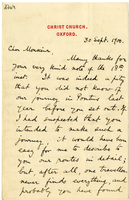 CHRIST CHURCH,
OXFORD.
30 Sept. 1910.
Cher Monsieur,
Many thanks for
your very kind note of the 18th
inst. It was indeed a pity
that you did not know of
our journey in Pontus last
year before you set out. If
I had suspected that you
intended to make such a
journey, it would have been
easy for me to describe to
you our routes in detail;
but after all, one traveller
never finds everything, and
probably you have found